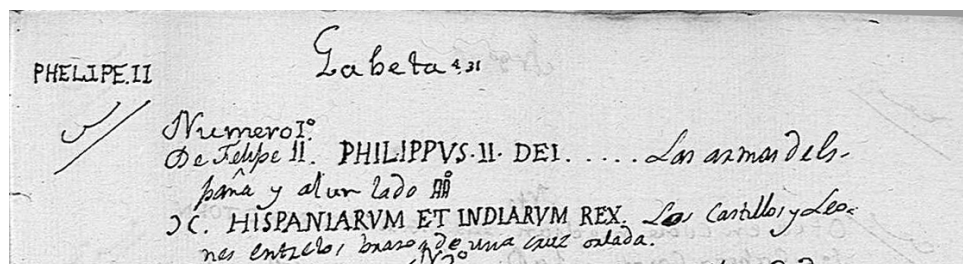 Gabeta 4.31
PHELIPE.II
Numero 1º
De Felipe II. PHILIPPVS·II· DEI . . . . . Las armas de Es-
paña y al un lado
ɔC. HISPANIARVM ET INDIARVM REX. Los Castillos y Leo-
nes entre los brazos de una cruz orlada.
Nº 2º